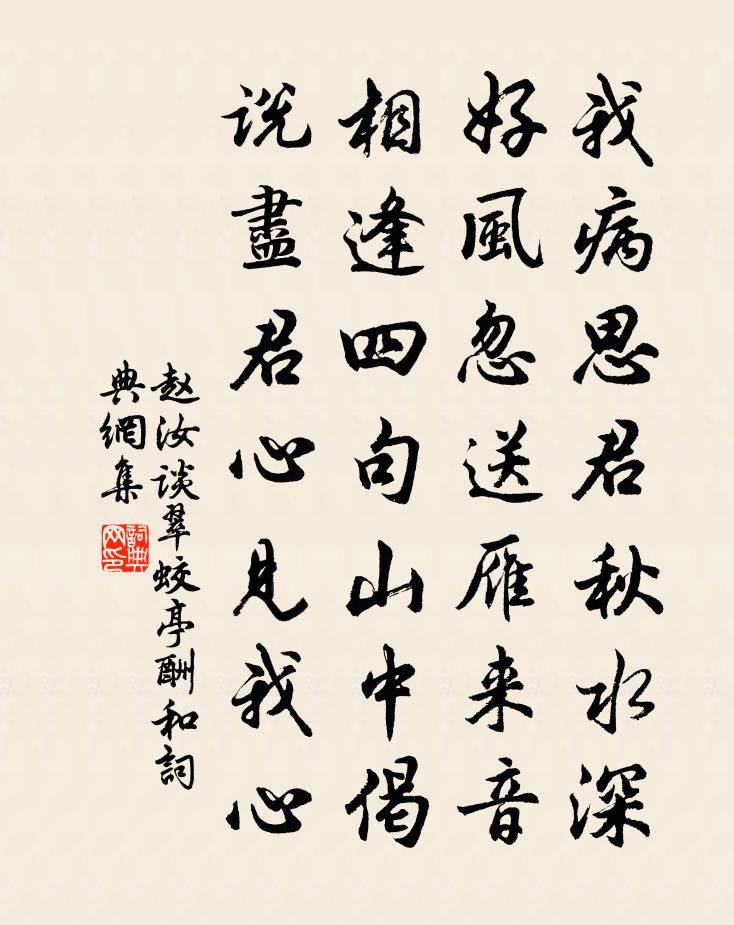 我病思君秋水深
好風忽送雁来音
相逢四句山中偈
說盡君心見我心
赵汝谈翠蛟亭酬和詞
典網集
詞典网印